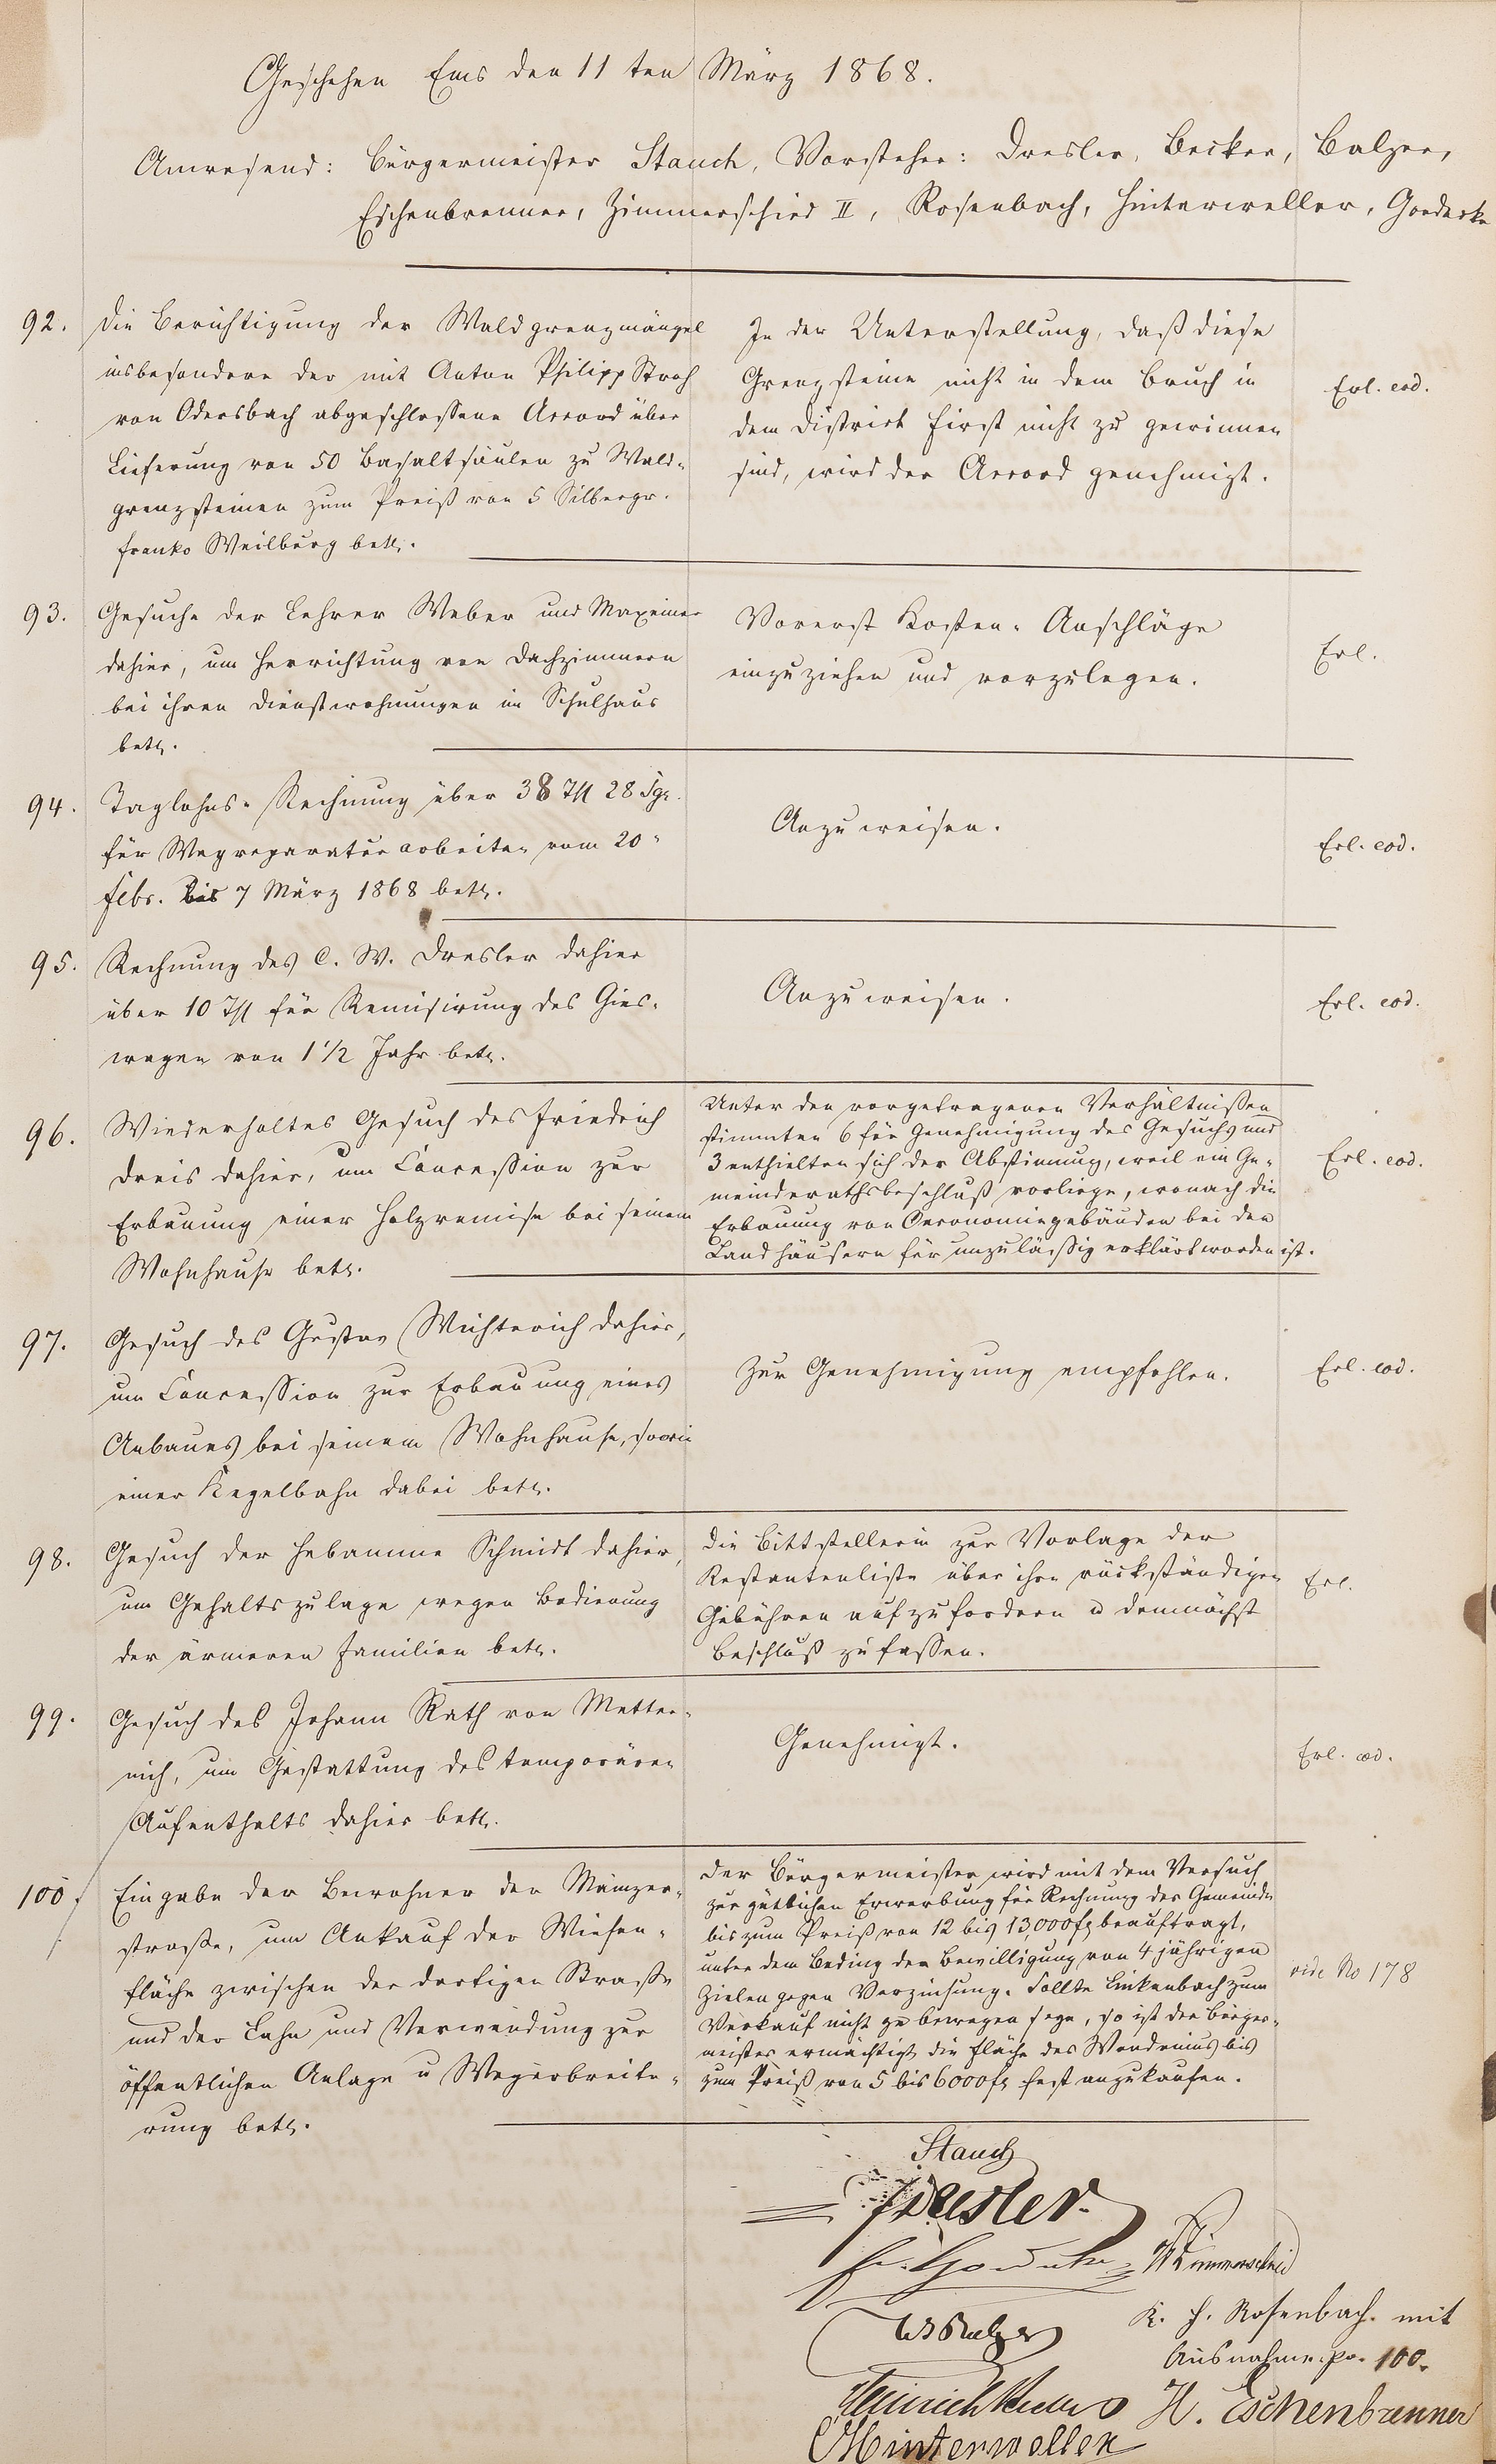 Geschehen Ems den 11ten März 1868.
Anwesend: Bürgermeister Stauch, Vorsteher: Dresler, Becker, Balzer,
Eschenbrenner, Zimmerschied II, Rosenbach, Hinterweller, Goedecke
92. Die Berichtigung der Waldgrenzmängel
insbesondere der mit Anton Philipp Stroh
von Odersbach abgeschlossene Accord über
Lieferung von 50 Basaltsäulen zu Wald-
grenzsteinen zum Preiß von 5 Silbergr.
franko Weilburg betr.
In der Unterstellung, daß diese
Grenzsteine nicht in dem Bruch in
dem District First nicht zu gewinnen
sind, wird der Accord genehmigt.
Erl. eod.
93. Gesuche der Lehrer Weber und Maxeiner
dahier, um Herrichtung von Dachzimmern
bei ihren Dienstwohnungen im Schulhaus
betr.
Vorerst Kosten-Anschläge
einzuziehen und vorzulegen.
Erl.
94. Taglohns-Rechnung über 38 Th 28 Sgr.
für Wegreparaturarbeiten vom 20"
Febr. bis 7 März 1868 betr.
Anzuweisen.
Erl. eod.
95. Rechnung des C. W. Dresler dahier
über 10 Th für Remisirung des Gies-
wagen von 1 1/2 Jahr betr.
Anzuweisen.
Erl. eod.
96. Wiederholtes Gesuch des Friedrich
Dreis dahier, um Concession zur
Erbauung einer Holzremise bei seinem
Wohnhause betr.
Unter den vorgetragenen Verhältnißen
stimmten 6 für Genehmigung des Gesuchs und
3 enthielten sich der Abstimmung, weil ein Ge-
meinderathsbeschluß vorliege, wonach die
Erbauung von Oeconomiegebäuden bei den
Landhäusern für unzuläßig erklärt worden ist.
Erl. eod.
97. Gesuch des Gustav Wichterich dahier,
um Concession zur Erbauung eines
Anbaues bei seinem Wohnhause, sowie
einer Kegelbahn dabei betr.
Zur Genehmigung empfohlen.
Erl. eod.
98. Gesuch der Hebamme Schmidt dahier,
um Gehaltszulage wegen Bedienung
der ärmeren Familien betr.
Die Bittstellerin zur Vorlage der
Restantenliste über ihre rückständigen
Gebühren aufzufordern u demnächst
Beschluß zu fassen.
Erl.
99. Gesuch des Johann Rath von Metter-
nich, um Gestattung des temporären
Aufenthalts dahier betr.
Genehmigt.
Erl. eod.
100. Eingabe der Bewohner der Mainzer-
straße, um Ankauf der Wiesen-
fläche zwischen der dortigen Straße
und der Lahn und Verwendung zur
öffentlichen Anlage u Wegerbreite-
rung betr.
Der Bürgermeister wird mit dem Versuch
zur gütlichen Erwerbung für Rechnung der Gemeinde
bis zum Preiß von 12 bis 13,000 fl beauftragt,
unter dem Beding der Bewilligung von 4 jährigen
Zielen gegen Verzinsung. Sollte Linkenbach zum
Verkauf nicht zu bewegen seyn, so ist der Bürger-
meister ermächtigt die Fläche des Wendenius bis
zum Preiß von 5 bis 6000 fl fest anzukaufen.
vide No 178
Stauch
Dresler
Fr. Goedecke Zimmerschied
W Balzer K. H. Rosenbach. mit
Ausnahme po. 100.
Heinrich H. Eschenbrenner
Hinterweller